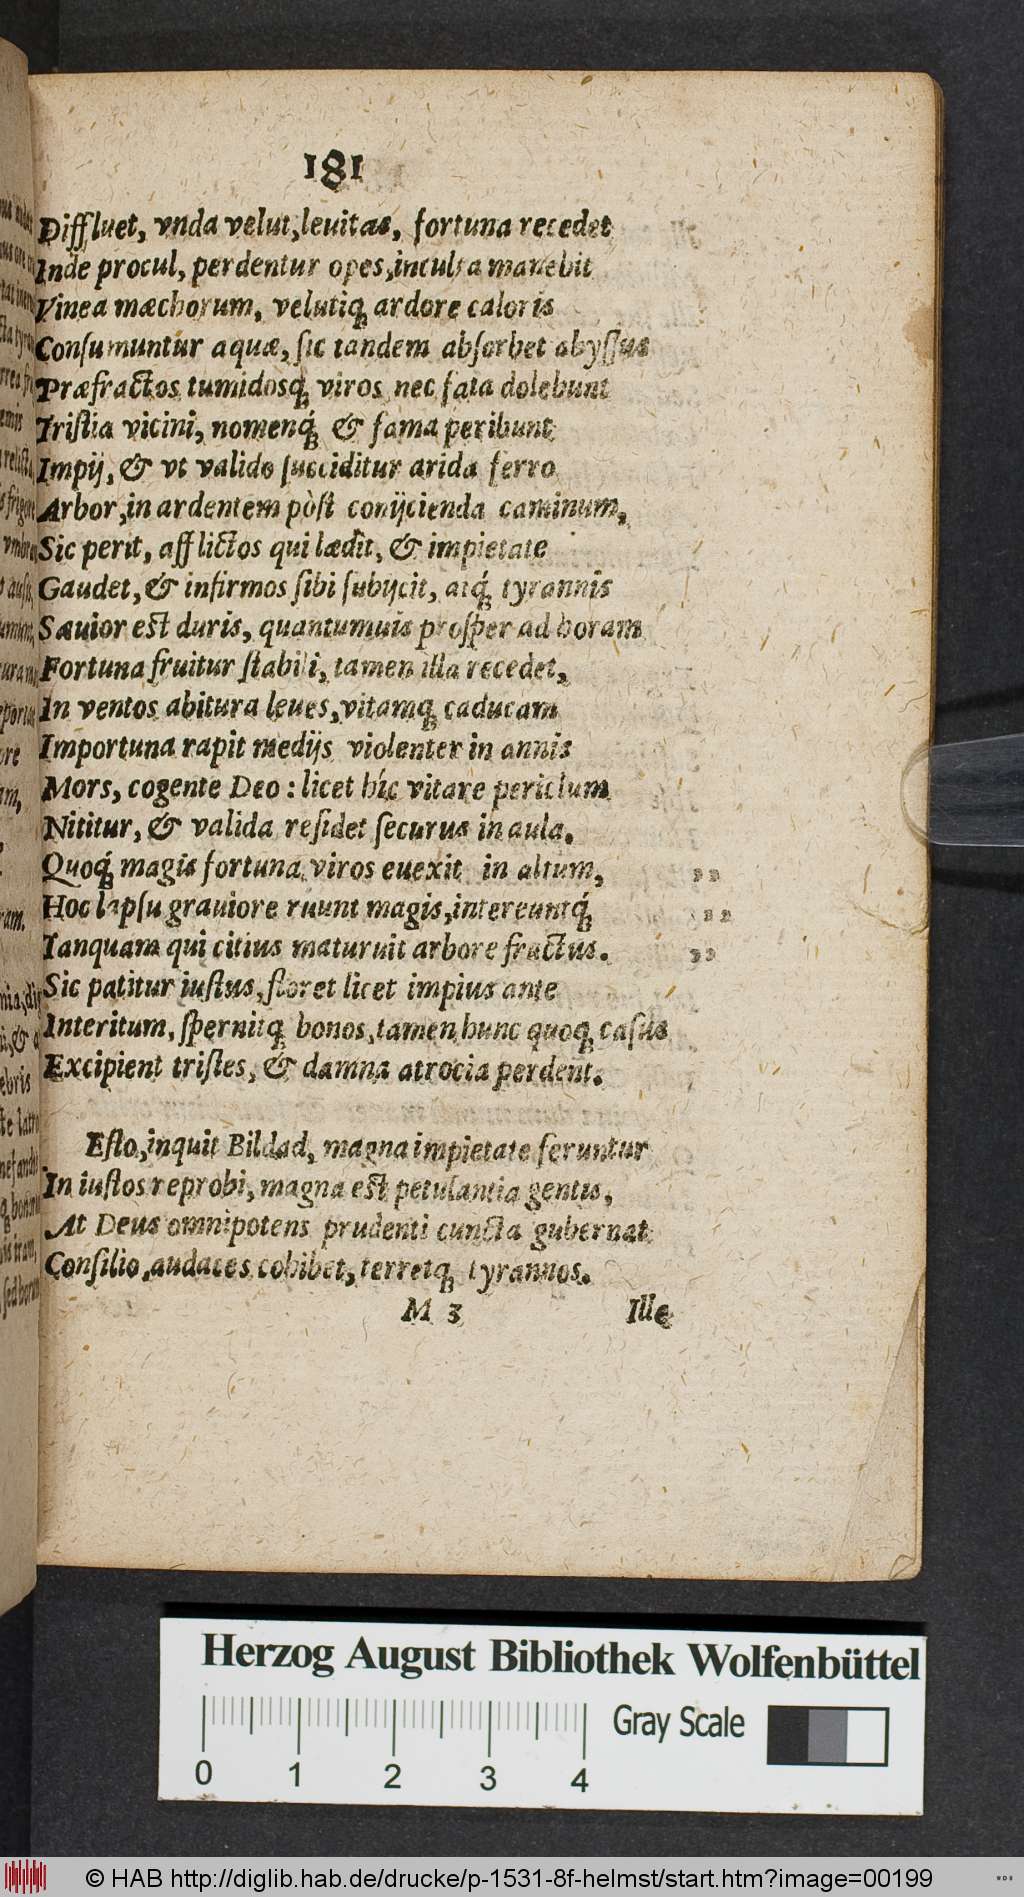 181
Diffluet, vnda velut, leuitas, fortuna recedet
Inde procul, perdentur opes, inculta manebit
Vinea mæchorum, velutiq́; ardore caloris
Consumuntur aquæ, sic tandem absorbet abyssus
Præfractos tumidosq́; viros nec fata dolebunt
Tristia vicini, nomenq́; & fama peribunt
Impij, & vt valido succiditur arida ferro
Arbor, in ardentem pòst conijcienda caminum,
Sic perit, afflictos qui lædit, & impietate
Gaudet, & infirmos sibi subijcit, atq́; tyrannis
Sæuior est duris, quantumuis prosper ad horam
Fortuna fruitur stabili, tamen illa recedet,
In ventos abitura leues, vitamq; caducam
Importuna rapit medijs violenter in annis
Mors, cogente Deo: licet híc vitare periclum
Nititur, & valida residet securus in aula.
Quoq́; magis fortuna viros euexit in altum, ,,
Hoc lapsu grauiore ruunt magis, intereuntq́; ,,
Tanquam qui citius maturuit arbore fructus. ,,
Sic patitur iustus, floret licet impius ante
Interitum, spernitq; bonos, tamen hunc quoq; casus
Excipient tristes, & damna atrocia perdent.
Esto, inquit Bildad, magna impietate feruntur
In iustos reprobi, magna est petulantia gentis,
At Deus omnipotens prudenti cuncta gubernat
Consilio, audaces cohibet, terretq; tyrannos.
M 3 Ille
Herzog August Bibliothek Wolfenbüttel
Gray Scale
0 1 2 3 4
© HAB http://diglib.hab.de/drucke/p-1531-8f-helmst/start.htm?image=00199